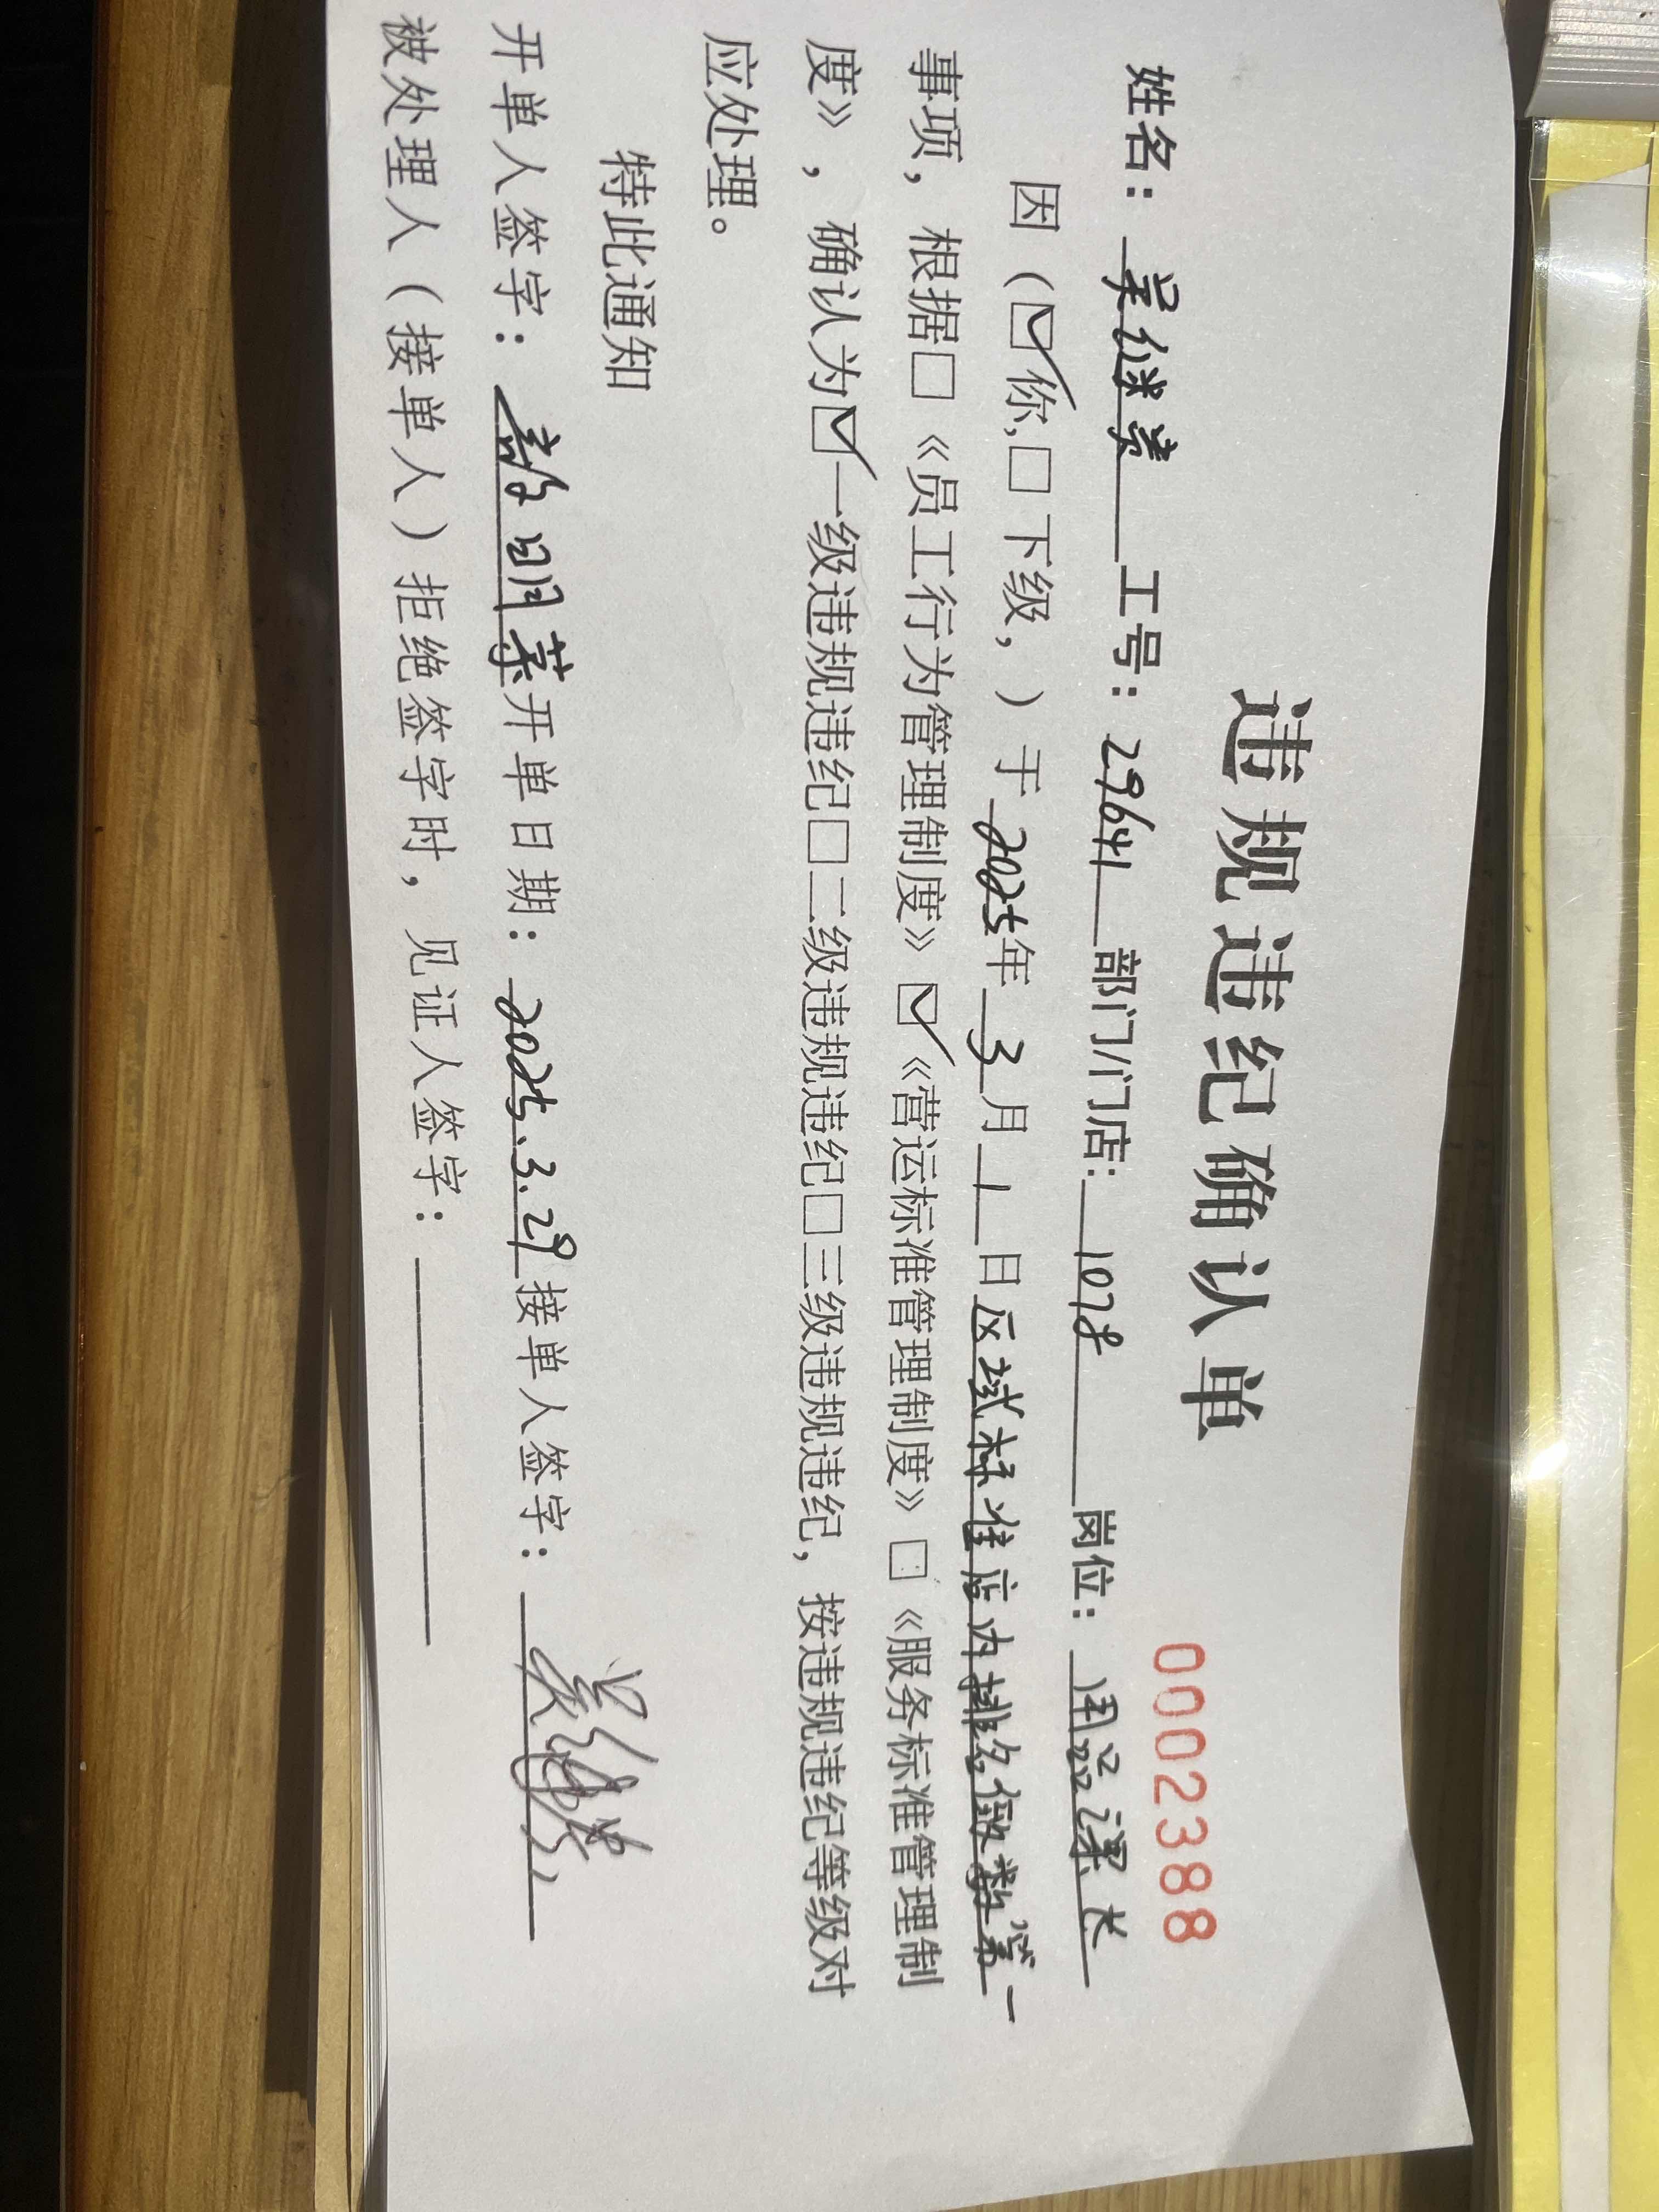 违规违纪确认单
0002388
姓名：吴继美 工号：29641 部门/门店：1078 岗位：用品课长
因（☑你,□下级，）于2025年3月1日区域标准店内排名倒数第一
事项，根据□《员工行为管理制度》☑《营运标准管理制度》□《服务标准管理制
度》，确认为☑一级违规违纪□二级违规违纪□三级违规违纪，按违规违纪等级对
应处理。
特此通知
开单人签字：开单日期：2025.3.29接单人签字：
被处理人（接单人）拒绝签字时，见证人签字：